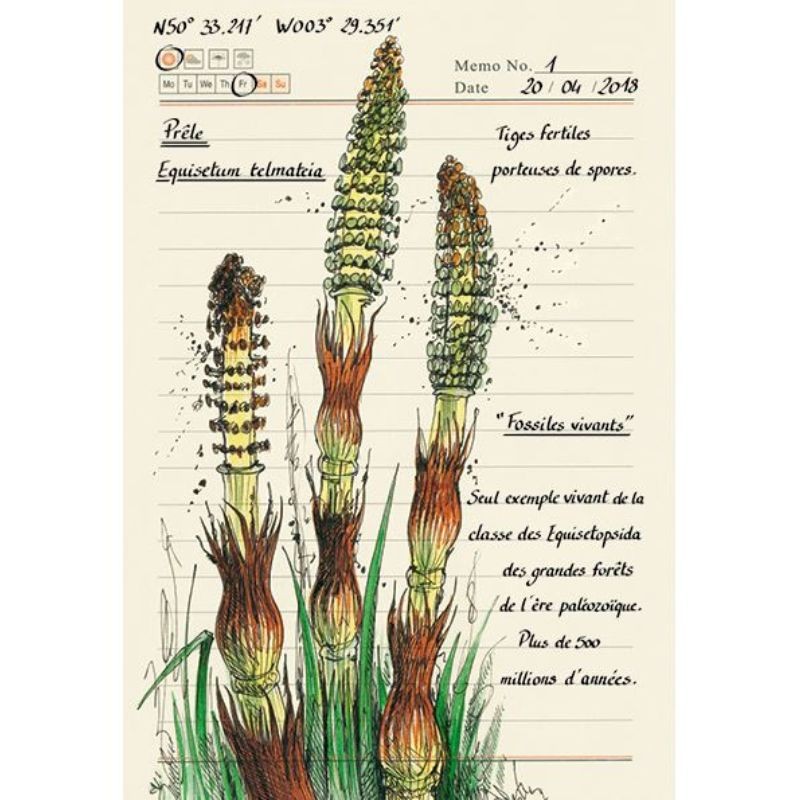 N50° 33.217' W003° 29.351'
Memo No. 1
Mo Tu We Th Fr Sa Su
Date 20 / 04 / 2018
Prêle
Equisetum telmateia
Tiges fertiles
porteuses de spores.
"Fossiles vivants"
Seul exemple vivant de la
classe des Equisetopsida
des grandes forêts
de l'ère paléozoïque.
Plus de 500
millions d'années.